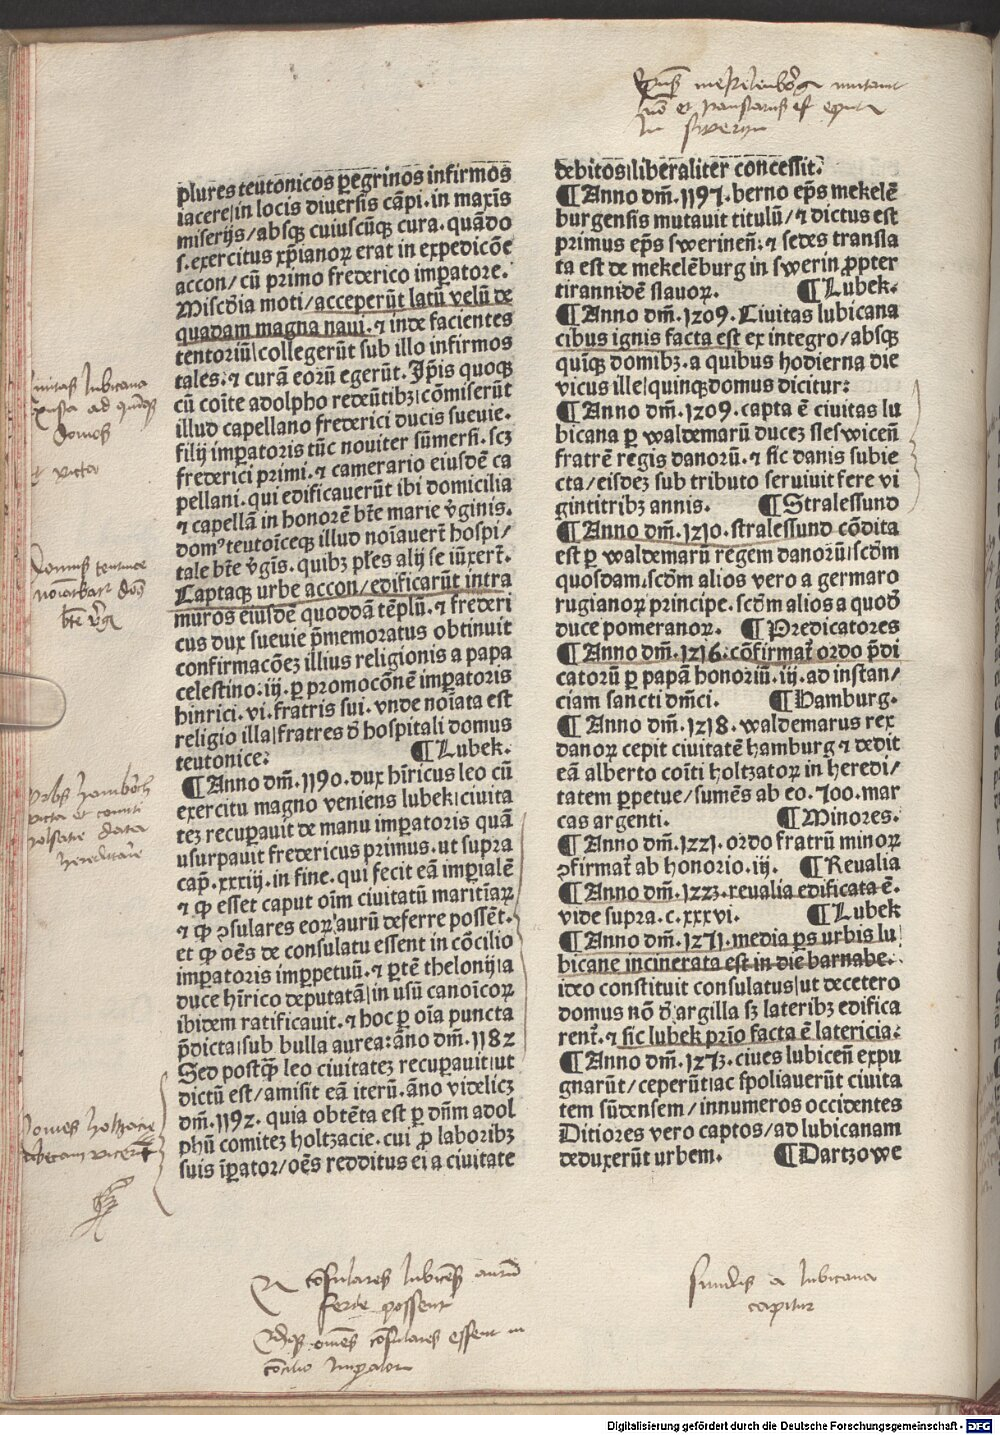 plures teutonicos ꝑegrinos infirmos
iacere/in locis diuersis cãpi. in maxĩs
miserijs/absqꝫ cuiuscũqꝫ cura. quãdo
s. exercitus xp̃ianoꝝ erat in expedicõe
accon/cũ primo frederico imꝑatore.
Misc̃dia moti/acceperũt latũ velũ de
quadam magna naui. ⁊ inde facientes
tentoriũ/collegerũt sub illo infirmos
tales: ⁊ curã eorũ egerũt. Ip̃is quoqꝫ
cũ coĩte adolpho redeũtibꝫ/cõmiserũt
illud capellano frederici ducis sueuie.
filij imꝑatoris tũc nouiter sũmersi. scꝫ
frederici primi. ⁊ camerario eiusdẽ ca
pellani. qui edificauerũt ibi domicilia
⁊ capellã in honorẽ bt̃e marie v̾ginis.
domꝰ teutoĩceqꝫ illud noĩauert̃ hospi/
tale bt̃e v̾gĩs. quibꝫ pl̃es alij se iũxert̃.
Captaqꝫ urbe accon/edificarũt intra
muros eiusdẽ quoddã tẽplũ. ⁊ frederi
cus dux sueuie p̃memoratus obtinuit
confirmacõeꝫ illius religionis a papa
celestino. iij. ꝑ promocõnẽ imꝑatoris
hinrici. vi. fratris sui. vnde noĩata est
religio illa/fratres d̾ hospitali domus
teutonice: ¶ Lubek.
¶ Anno dm̃. 1190. dux hĩricus leo cũ
exercitu magno veniens lubek/ciuita
teꝫ recuꝑauit de manu imꝑatoris quã
usurpauit fredericus primus. ut supra
cap̃. xxxiij. in fine. qui fecit eã imꝑialẽ
⁊ ꝙ esset caput oĩm ciuitatũ maritĩaꝝ
⁊ ꝙ ꝯsulares eoꝝ aurũ deferre possẽt.
et ꝙ oẽs de consulatu essent in cõcilio
imꝑatoris imꝑpetuũ. ⁊ ꝑtẽ thelonij/a
duce hĩrico deputatã/in usũ canoĩcoꝝ
ibidem ratificauit. ⁊ hoc ꝑ oĩa puncta
p̃dicta/sub bulla aurea: ãno dm̃. 1182
Sed postꝙ̃ leo ciuitateꝫ recuꝑauit/ut
dictũ est/amisit eã iterũ. ãno videlicꝫ
dm̃. 1192. quia obtẽta est ꝑ dñm adol
phũ comiteꝫ holtzacie. cui ꝓ laboribꝫ
suis ĩꝑator/oẽs redditus ei a ciuitate
debitos/liberaliter concessit.
¶ Anno dm̃. 1197. berno ep̃s mekelẽ
burgensis mutauit titulũ/⁊ dictus est
primus ep̃s swerineñ: ⁊ sedes transla
ta est de mekelẽburg in swerin ꝓpter
tirannidẽ slauoꝝ. ¶ Lubek.
¶ Anno dm̃. 1209. Ciuitas lubicana
cibus ignis facta est ex integro/absqꝫ
quĩqꝫ domibꝫ. a quibus hodierna die
vicus ille/quinqꝫ domus dicitur:
¶ Anno dm̃. 1209. capta ẽ ciuitas lu
bicana ꝑ waldemarũ duceꝫ sleswiceñ
fratrẽ regis danorũ. ⁊ sic danis subie
cta/eisdeꝫ sub tributo seruiuit fere vi
gintitribꝫ annis. ¶ Stralessund
¶ Anno dm̃. 1210. stralessund cõdita
est ꝑ waldemarũ regem danorũ/scd̃m
quosdam. scd̃m alios vero a germaro
rugianoꝝ principe. scd̃m alios a quod̃
duce pomeranoꝝ. ¶ Predicatores
¶ Anno dm̃. 1216. cõfirmat̃ ordo p̃di
catorũ ꝑ papã honoriũ. iij. ad instan/
ciam sancti dm̃ci. ¶ Hamburg.
¶ Anno dm̃. 1218. waldemarus rex
danoꝝ cepit ciuitatẽ hamburg ⁊ dedit
eã alberto coĩti holtzatoꝝ in heredi/
tatem ꝑpetue/sumẽs ab eo. 700. mar
cas argenti. ¶ Minores.
¶ Anno dm̃. 1221. ordo fratrũ minoꝝ
ꝯfirmat̃ ab honorio. iij. ¶ Reualia
¶ Anno dm̃. 1223. reualia edificata ẽ.
vide supra. c. xxxvi. ¶ Lubek
¶ Anno dm̃. 1271. media ꝑs urbis lu
bicane incinerata est in die barnabe.
ideo constituit consulatus/ut decetero
domus nõ d̾ argilla sꝫ lateribꝫ edifica
rent̃. ⁊ sic lubek pr̃io facta ẽ latericia.
¶ Anno dm̃. 1273. ciues lubiceñ expu
gnarũt/ceperũt/ac spoliauerũt ciuita
tem sũdensem/innumeros occidentes
Ditiores vero captos/ad lubicanam
deduxerũt urbem. ¶ Dartzowe
ciuitas lubicana
domos
Domus teutonice
bt̃e v̾gĩs
holsatie data
hereditarie
Comes holtzacie
consulares lubicẽs̃ aurũ
ferre possent
omẽs cõsulares essent in
cõcilio Imꝑatoris
Sundis a lubicana
capitur
Digitalisierung gefördert durch die Deutsche Forschungsgemeinschaft - DFG